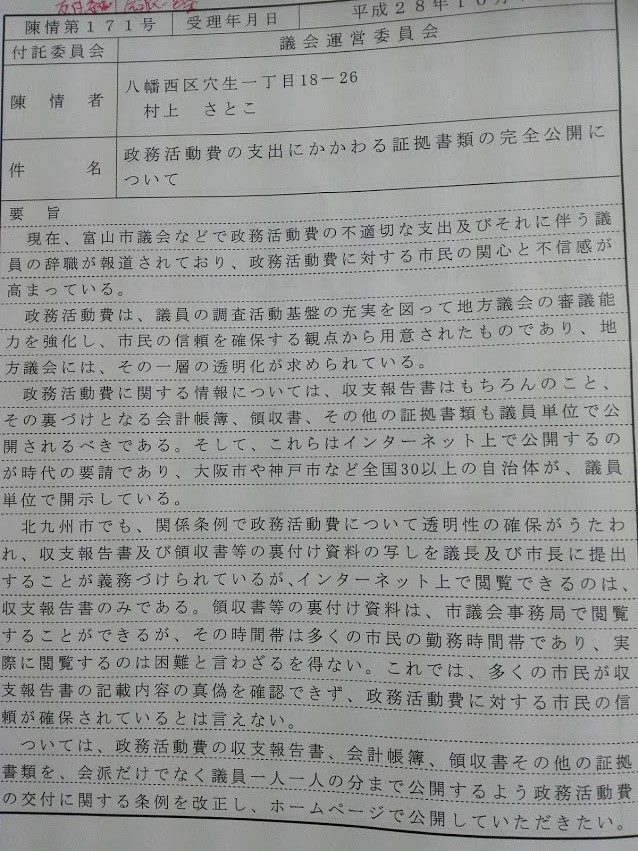 陳情第171号 受理年月日 平成28年10月
付託委員会 議会運営委員会
陳情者 八幡西区穴生一丁目18－26
村上 さとこ
件名 政務活動費の支出にかかわる証拠書類の完全公開に
ついて
要旨
現在、富山市議会などで政務活動費の不適切な支出及びそれに伴う議
員の辞職が報道されており、政務活動費に対する市民の関心と不信感が
高まっている。
政務活動費は、議員の調査活動基盤の充実を図って地方議会の審議能
力を強化し、市民の信頼を確保する観点から用意されたものであり、地
方議会には、その一層の透明化が求められている。
政務活動費に関する情報については、収支報告書はもちろんのこと、
その裏づけとなる会計帳簿、領収書、その他の証拠書類も議員単位で公
開されるべきである。そして、これらはインターネット上で公開するの
が時代の要請であり、大阪市や神戸市など全国30以上の自治体が、議員
単位で開示している。
北九州市でも、関係条例で政務活動費について透明性の確保がうたわ
れ、収支報告書及び領収書等の裏付け資料の写しを議長及び市長に提出
することが義務づけられているが、インターネット上で閲覧できるのは、
収支報告書のみである。領収書等の裏付け資料は、市議会事務局で閲覧
することができるが、その時間帯は多くの市民の勤務時間帯であり、実
際に閲覧するのは困難と言わざるを得ない。これでは、多くの市民が収
支報告書の記載内容の真偽を確認できず、政務活動費に対する市民の信
頼が確保されているとは言えない。
ついては、政務活動費の収支報告書、会計帳簿、領収書その他の証拠
書類を、会派だけでなく議員一人一人の分まで公開するよう政務活動費
の交付に関する条例を改正し、ホームページで公開していただきたい。